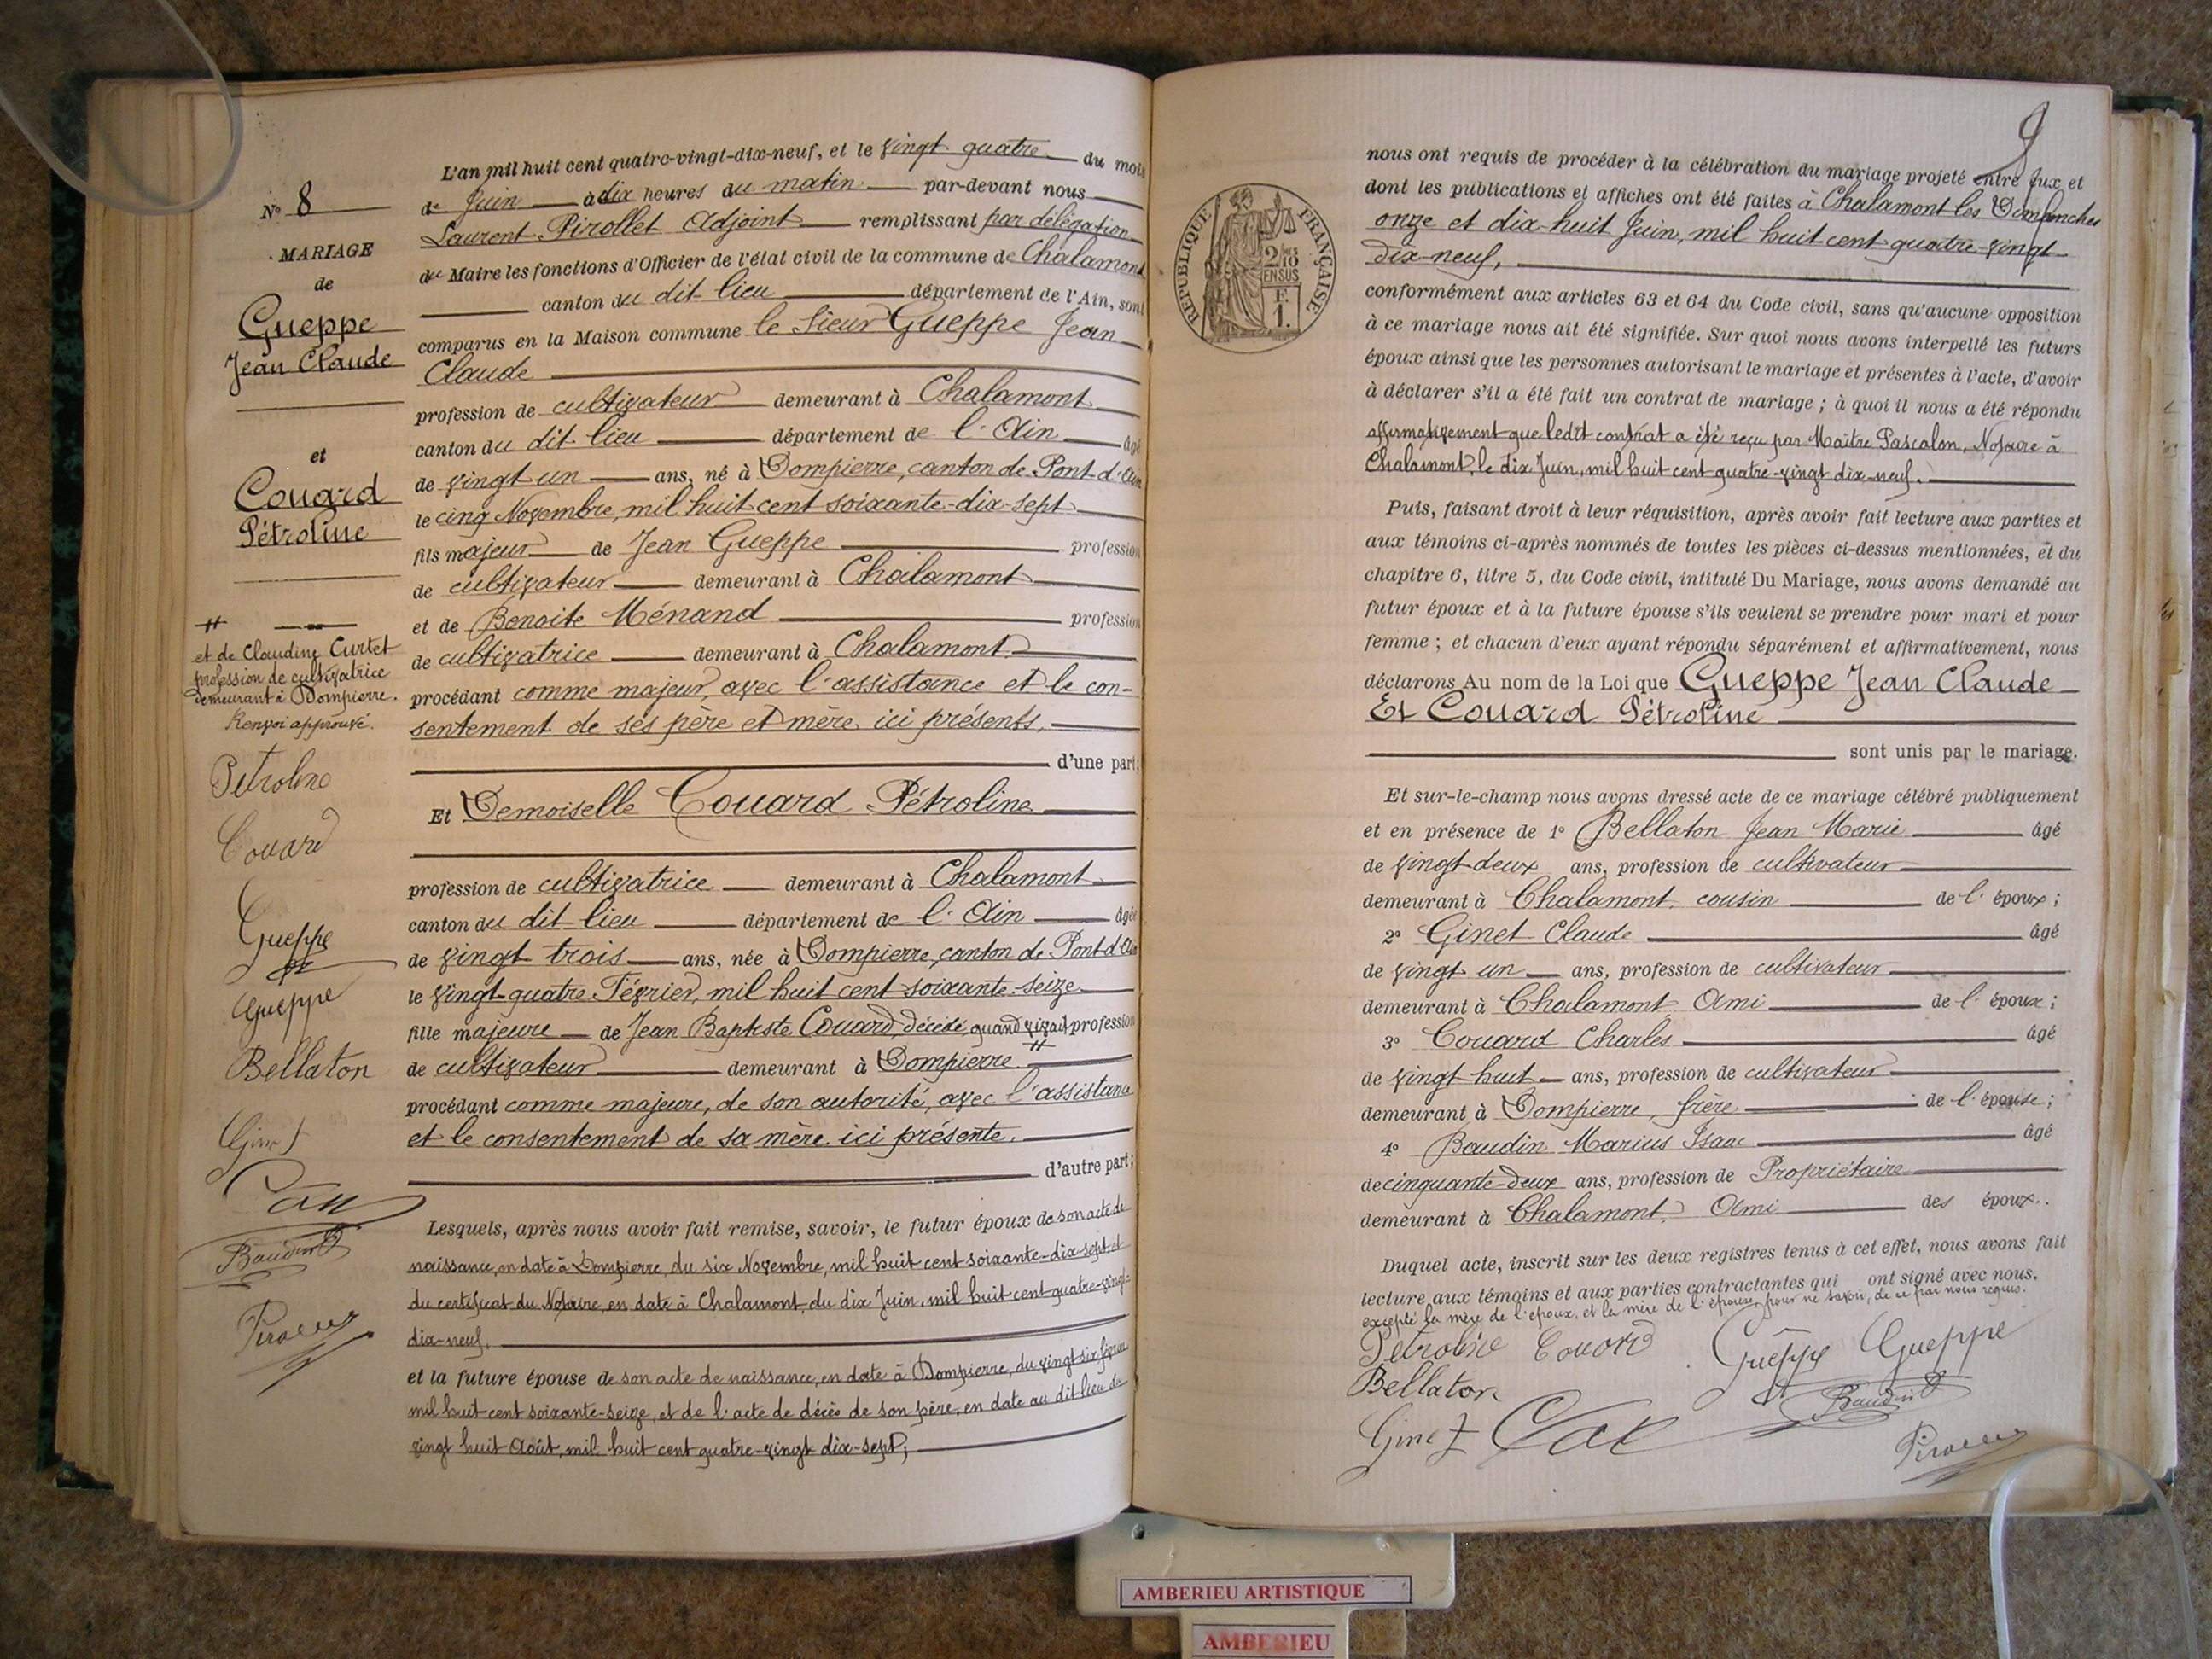 N° 8
MARIAGE
de
Gueppe
Jean Claude
et
Couard
Pétroline
et de Claudine Curtet
profession de cultivatrice
demeurant à Dompierre.
Renvoi approuvé.
Petroline
Couard
Gueppe
Gueppe
Bellaton
Ginet
Baudin
L'an mil huit cent quatre-vingt-dix-neuf, et le vingt quatre du mois
de Juin à dix heures du matin par-devant nous
Laurent Pirollet Adjoint remplissant par délégation
du Maire les fonctions d'Officier de l'état civil de la commune de Chalamont
canton du dit lieu département de l'Ain, sont
comparus en la Maison commune le Sieur Gueppe Jean
Claude
profession de cultivateur demeurant à Chalamont
canton du dit lieu département de l'Ain âgé
de vingt un ans, né à Dompierre, canton de Pont-d'Ain
le cinq Novembre, mil huit cent soixante-dix-sept
fils majeur de Jean Gueppe profession
de cultivateur demeurant à Chalamont
et de Benoite Ménand profession
de cultivatrice demeurant à Chalamont
procédant comme majeur, avec l'assistance et le con-
sentement de ses père et mère ici présents,
d'une part;
Et Demoiselle Couard Pétroline
profession de cultivatrice demeurant à Chalamont
canton du dit lieu département de l'Ain âgée
de vingt trois ans, née à Dompierre, canton de Pont-d'Ain
le vingt-quatre Février, mil huit cent soixante-seize
fille majeure de Jean Baptiste Couard, décédé, quand vivait profession
de cultivateur demeurant à Dompierre
procédant comme majeure, de son autorité, avec l'assistance
et le consentement de sa mère ici présente.
d'autre part;
Lesquels, après nous avoir fait remise, savoir, le futur époux de son acte de
naissance, en date à Dompierre, du six Novembre, mil huit cent soixante-dix-sept et
du certificat du Notaire, en date à Chalamont, du dix Juin, mil huit cent quatre-vingt-
dix-neuf,
et la future épouse de son acte de naissance, en date à Dompierre, du vingt six février
mil huit cent soixante-seize, et de l'acte de décès de son père, en date au dit lieu du
vingt huit Août, mil huit cent quatre-vingt dix-sept;
9
RÉPUBLIQUE FRANÇAISE
2/10
EN SUS
F.
1.
nous ont requis de procéder à la célébration du mariage projeté entre eux et
dont les publications et affiches ont été faites à Chalamont les Dimanches
onze et dix-huit Juin, mil huit cent quatre-vingt-
dix-neuf,
conformément aux articles 63 et 64 du Code civil, sans qu'aucune opposition
à ce mariage nous ait été signifiée. Sur quoi nous avons interpellé les futurs
époux ainsi que les personnes autorisant le mariage et présentes à l'acte, d'avoir
à déclarer s'il a été fait un contrat de mariage ; à quoi il nous a été répondu
affirmativement que ledit contrat a été reçu par Maître Pascalon, Notaire à
Chalamont, le dix Juin, mil huit cent quatre-vingt dix-neuf.
Puis, faisant droit à leur réquisition, après avoir fait lecture aux parties et
aux témoins ci-après nommés de toutes les pièces ci-dessus mentionnées, et du
chapitre 6, titre 5, du Code civil, intitulé Du Mariage, nous avons demandé au
futur époux et à la future épouse s'ils veulent se prendre pour mari et pour
femme ; et chacun d'eux ayant répondu séparément et affirmativement, nous
déclarons Au nom de la Loi que Gueppe Jean Claude
Et Couard Pétroline
sont unis par le mariage.
Et sur-le-champ nous avons dressé acte de ce mariage célébré publiquement
et en présence de 1° Bellaton Jean Marie âgé
de vingt-deux ans, profession de cultivateur
demeurant à Chalamont, cousin de l'époux ;
2° Ginet Claude âgé
de vingt un ans, profession de cultivateur
demeurant à Chalamont Ami de l'époux ;
3° Couard Charles âgé
de vingt-huit ans, profession de cultivateur
demeurant à Dompierre, frère de l'épouse ;
4° Baudin Marius Isaac âgé
de cinquante-deux ans, profession de Propriétaire
demeurant à Chalamont, Ami des époux.
Duquel acte, inscrit sur les deux registres tenus à cet effet, nous avons fait
lecture aux témoins et aux parties contractantes qui ont signé avec nous,
excepté la mère de l'époux, et la mère de l'épouse, pour ne savoir, de ce par nous requis.
Petroline Couard Gueppe Gueppe
Bellaton Baudin
Ginet
AMBERIEU ARTISTIQUE
AMBERIEU